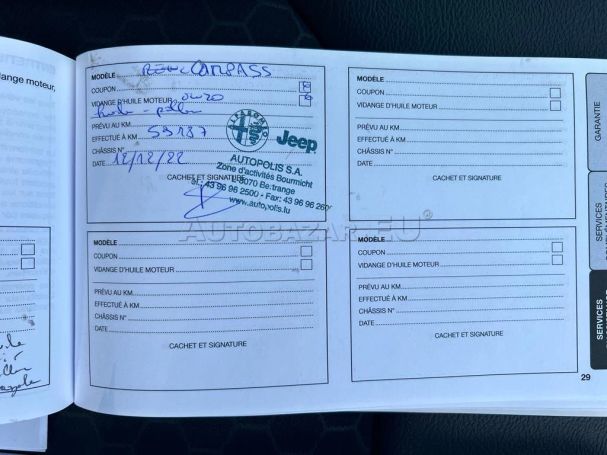 lange moteur,
MODÈLE COMPASS
COUPON
VIDANGE D'HUILE MOTEUR 0W20
Huile - pollen
PRÉVU AU KM
EFFECTUÉ À KM 59187
CHÂSSIS N°
DATE 12/12/22
CACHET ET SIGNATURE
Jeep
AUTOPOLIS S.A.
Zone d'activités Bourmicht
L-8070 Bertrange
tél.: 43 96 96 2500 - Fax: 43 96 96 260
www.autopolis.lu
MODÈLE
COUPON
VIDANGE D'HUILE MOTEUR
PRÉVU AU KM
EFFECTUÉ À KM
CHÂSSIS N°
DATE
CACHET ET SIGNATURE
MODÈLE
COUPON
VIDANGE D'HUILE MOTEUR
PRÉVU AU KM
EFFECTUÉ À KM
CHÂSSIS N°
DATE
CACHET ET SIGNATURE
MODÈLE
COUPON
VIDANGE D'HUILE MOTEUR
PRÉVU AU KM
EFFECTUÉ À KM
CHÂSSIS N°
DATE
CACHET ET SIGNATURE
GARANTIE
SERVICES
SERVICES
29
AUTOBAZAR.EU®